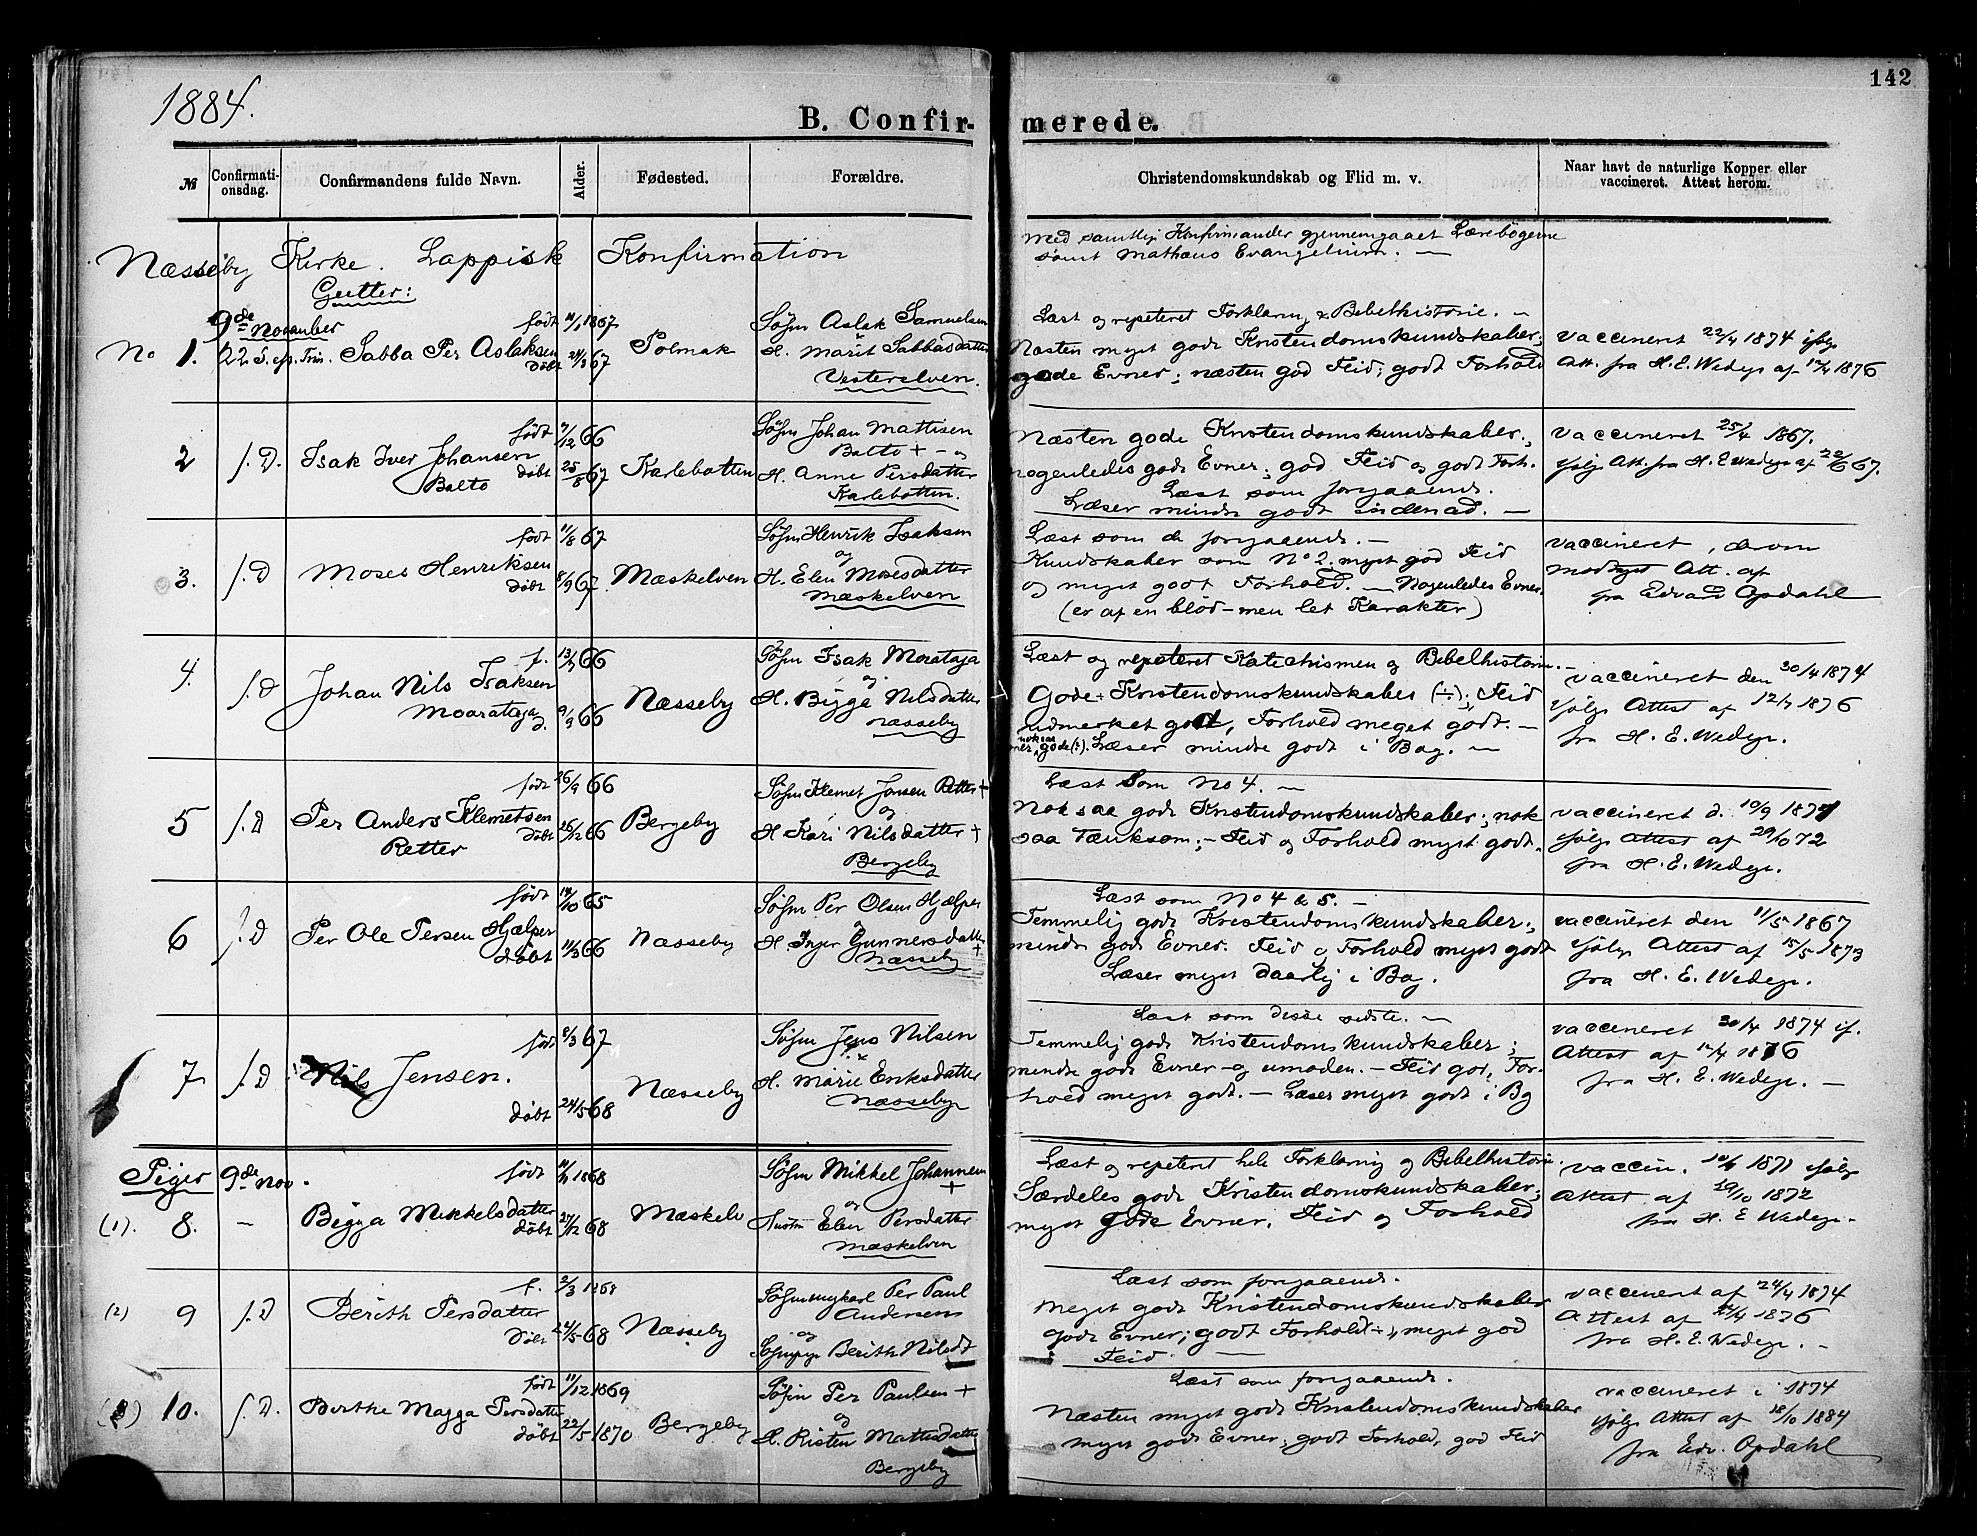 142
1884.
B. Confirmerede.
№
Confirmationsdag.
Confirmandens fulde Navn.
Alder.
Fødested.
Forældre.
Christendomskundskab og Flid m. v.
Naar havt de naturlige Kopper eller vaccineret. Attest herom.
Næsseby Kirke. Lappisk Konfirmation
Gutter:
Med samtlige Konfirmander gjennemgaaet Lærebøgerne
samt Mathæus Evangelium. —
9de November
No 1. 22 S. ef. Trin. Sabba Per Aslaksen
født 11/1 1867
døbt 24/3 67
Polmak
Søfin Aslak Samuelsen
H. Marit Sabbasdatter
Vesterelven.
Læst og repeteret Forklaring & Bibelhistorie. —
Næsten myet gode Kristendomskundskaber;
gode Evner; næsten god Flid; godt Forhold
vaccineret 22/4 1874 ifølge
Att. fra H. E. Wedege af 12/4 1876
2 s. D. Isak Iver Johansen
Balto
født 9/12 66
døbt 25/8 67
Karlebotten
Søfin Johan Mattisen
Balto + — og
H. Anne Persdatter
Karlebotten.
Næsten gode Kristendomskundskaber;
nogenledes gode Evner; god Flid og godt Forh.
Læst som foregaaende.
Læser mindre godt indenad. —
vaccineret 25/4 1867.
ifølge Att. fra H. E. Wedege af 22/6 67.
3. s. D Moses Henriksen
født 11/8 67
døbt 8/9 67.
Mæskelven
Søfin Henrik Isaksen
og
H. Elen Mosesdatter
Mæskelven
Læst som de foregaaende. —
Kundskaber som No 2. myet god Flid
og myet godt Forhold. — Nogenledes Evner.
(er af en blød — men let Karakter)
vaccineret, derom
Att. af
fra Edvard Opdahl
4. s. D Johan Nils Isaksen
f. 13/7 66
d. 9/9 66
Næsseby
Søfin Isak
og
H. Bigga Nilsdatter
Næsseby
Læst og repeteret Katechismen og Bibelhistorie. —
Gode÷ Kristendomskundskaber (÷); Flid
udmerket godt, Forhold meget godt. —
nok saa gode (÷). Læser mindre godt i Bog. —
vaccineret den 30/4 1874
ifølge Attest af 12/4 1876
fra H. E. Wedege.
5 s. D Per Anders Klemetsen
Retter
født 26/9 66
døbt 26/12 66
Bergeby
Søfin Klemet Jonsen Retter +
og
H Kari Nilsdatter +
Bergeby
Læst som No 4. —
Nok saa gode Kristendomskundskaber; nok
saa Tænksom; — Flid og Forhold myet godt.
vaccineret d. 10/9 1871
ifølge Attest af 29/10 72
fra H. E. Wedege.
6 s. D Per Ole Persen Hjælper
født 14/10 65
døbt 11/3 66
Næsseby
Søfin Per Olsen Hjælper
H Inger Gunnersdatter +
Næsseby
Læst som No 4 & 5. —
Temmelig gode Kristendomskundskaber;
mindre gode Evner. Flid og Forhold myet godt
Læser myet daarlig i Bog.
vaccineret den 11/5 1867
ifølge Attest af 15/5 1873
fra H. E. Wedege.
7 s. D Nils Jensen.
født 8/3 67
døbt 24/5 68
Næsseby
Søfin Jens Nilsen
H. Marie Eriksdatter
Næsseby
Læst som disse sidste. —
Temmelig gode Kristendomskundskaber;
mindre gode Evner og umoden. — Flid god, For-
hold meget godt. — Læser myet godt i Bog
vaccineret 30/4 1874 if.
Attest af 12/4 1876
fra H. E. Wedege. —
Piger 9de Nov.
(1). 8. — Bigga Mikkelsdatter
født 11/11 1868
døbt 27/12 68
Mæskelv
Søfin Mikkel Johannesen
+
og
Hustru Elen Persdatter
Mæskelven
Læst og repeteret hele Forklaring og Bibelhistorie.
Særdeles gode Kristendomskundskaber;
myet gode Evner. Flid og Forhold
vaccin. 10/9 1871 ifølge
Attest af 29/10 1872
fra H. E Wedege.
(2) 9 s. D Berith Persdatter
f. 2/3 1868
døbt 24/5 68
Næsseby
Søfinungkarl Per Paul
Andersen
og
Søfinpige Berith Nilsdt
Læst som foregaaende.
Meget gode Kristendomskundskaber
gode Evner; godt Forhold ÷, meget god
Flid. —
vaccineret af 24/4 1874
Attest af 12/4 1876
fra H. E. Wedege. —
(3) 10. s. D. Birthe Magga Persdatter
født 11/12 1869
døbt 22/5 1870
Bergeby
Søfin Per Paulsen +
og
H. Risten Mattisdatter
Bergeby
Læst som foregaaende.
Næsten myet gode Kristendomskundskaber
myet gode Evner; godt Forhold, god Flid
vaccineret i 1874
ifølge Attest af 18/10 1884
fra Edv. Opdahl